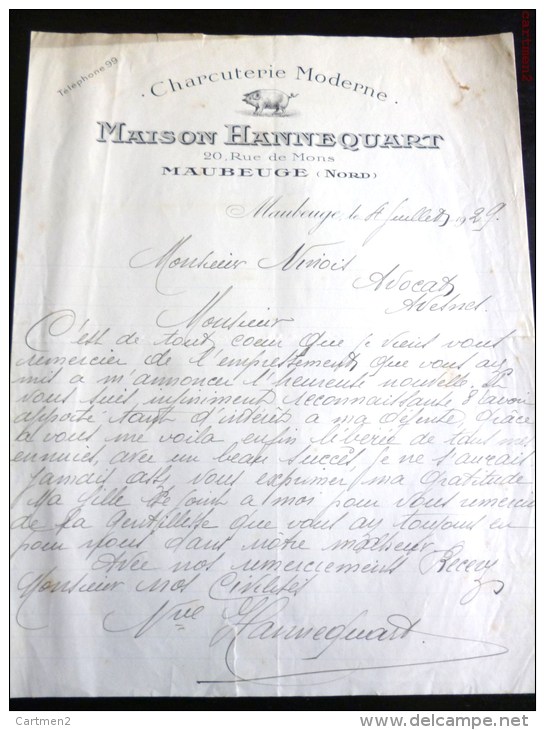 cartmen2
Téléphone 99
· Charcuterie Moderne ·
MAISON HANNEQUART
20, Rue de Mons
MAUBEUGE (NORD)
Maubeuge, le 4 Juillet 1929.
Monsieur
Avocat
Avesnes
Monsieur
C'est de tout coeur que je viens vous
remercier de l'empressement que vous ay
mis a m'annoncer l'heureuse nouvelle, Je
vous suis infiniment reconnaissante d'avoir
apporté tant d'intérêt a ma défense, Grâce
a vous, me voila enfin libérée de tous mes
ennuies, avec un beau succès, je ne s'aurais
jamais ass vous exprimer ma gratitude
Ma fille se joint a moi pour vous remercier
de la gentillesse que vous ay toujours eu
pour nous dans notre malheur
Avec nos remerciements Recevez
Monsieur nos Civilités
Vve Hannequart
Cartmen2
www.delcampe.net